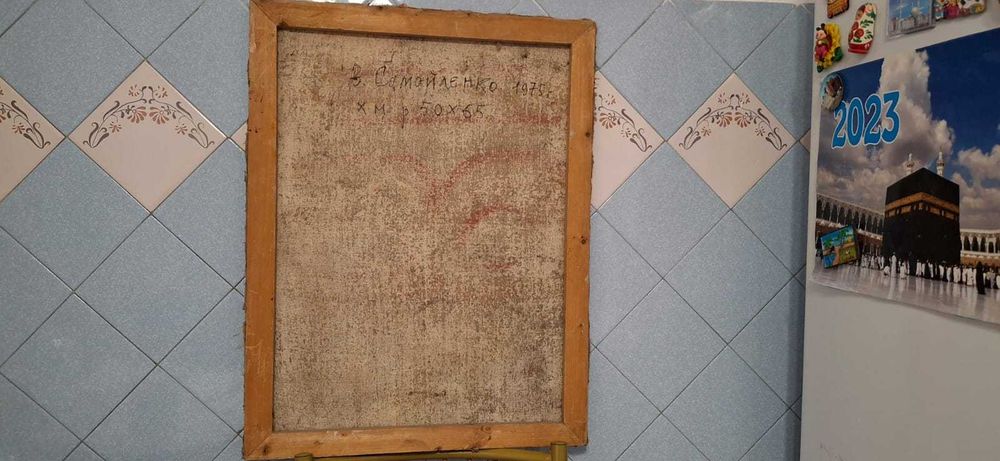 В. Самайленко 1975г.
х.м. р. 50х65
2023